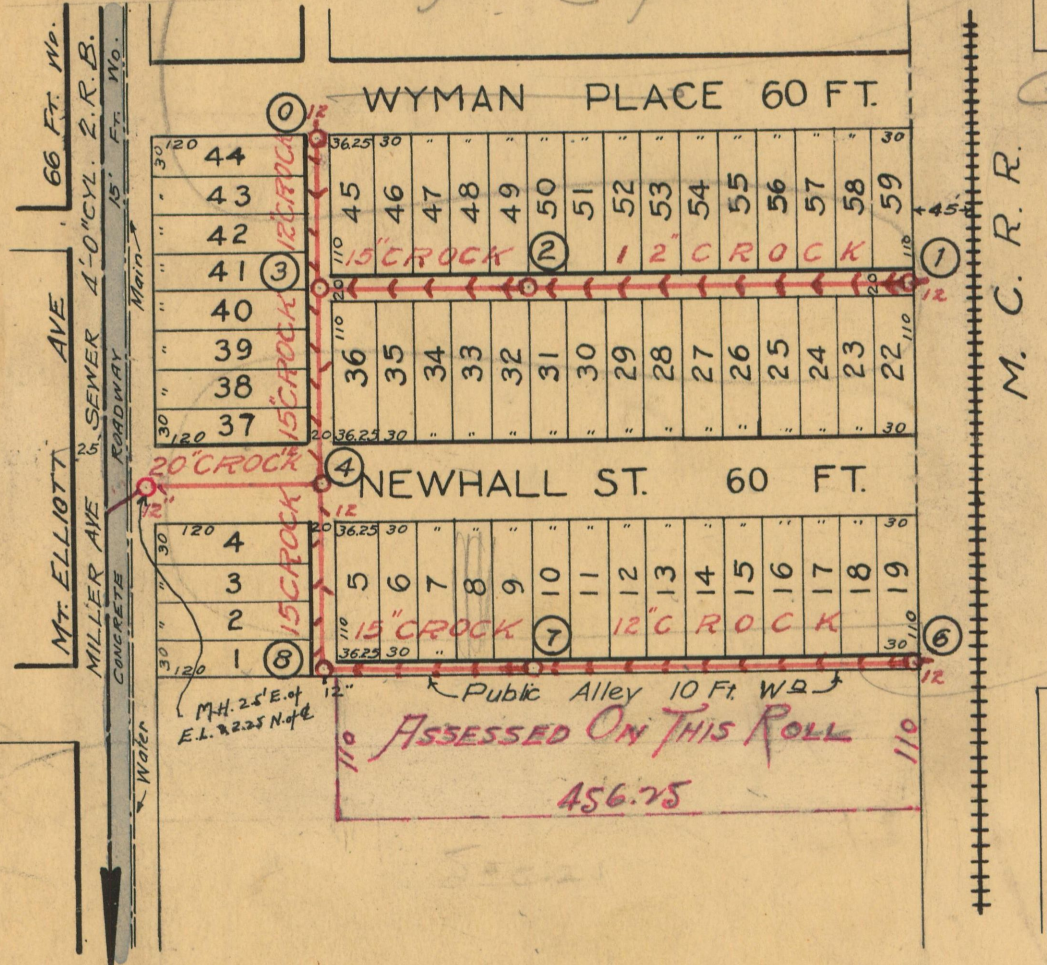 WYMAN PLACE 60 FT.
66 Ft. Wd.
Mt. ELLIOTT AVE
MILLER AVE 25' SEWER 4'-0" CYL. 2.R.B.
CONCRETE ROADWAY 15' Ft. Wd.
Main
Water
M. C. R. R.
45
0 12
120 44 30
43 "
42 "
41 " 3
40
39 "
38 "
37 30 120
12" CROCK
15" CROCK
36.25 30 " " " " " " " " " " " " 30
45 46 47 48 49 50 51 52 53 54 55 56 57 58 59
110 15" CROCK 2 12" CROCK 110 1
20 20 12
110 110
36 35 34 33 32 31 30 29 28 27 26 25 24 23 22
20 36.25 30 " " " " " " " " " " " 30
20" CROCK 4
12"
NEWHALL ST. 60 FT.
12
20 36.25 30 " " " " " " " " " " " " 30
120 4 30
3 "
2 "
1 30 120 8
15 CROCK
5 6 7 8 9 10 11 12 13 14 15 16 17 18 19
110 15" CROCK 7 12" CROCK 110 6
36.25 30 " 30
12" 12
Public Alley 10 Ft Wd
M.H. 25' E. of
E.L. & 2.25 N. of ℄
110 ASSESSED ON THIS ROLL 110
456.25